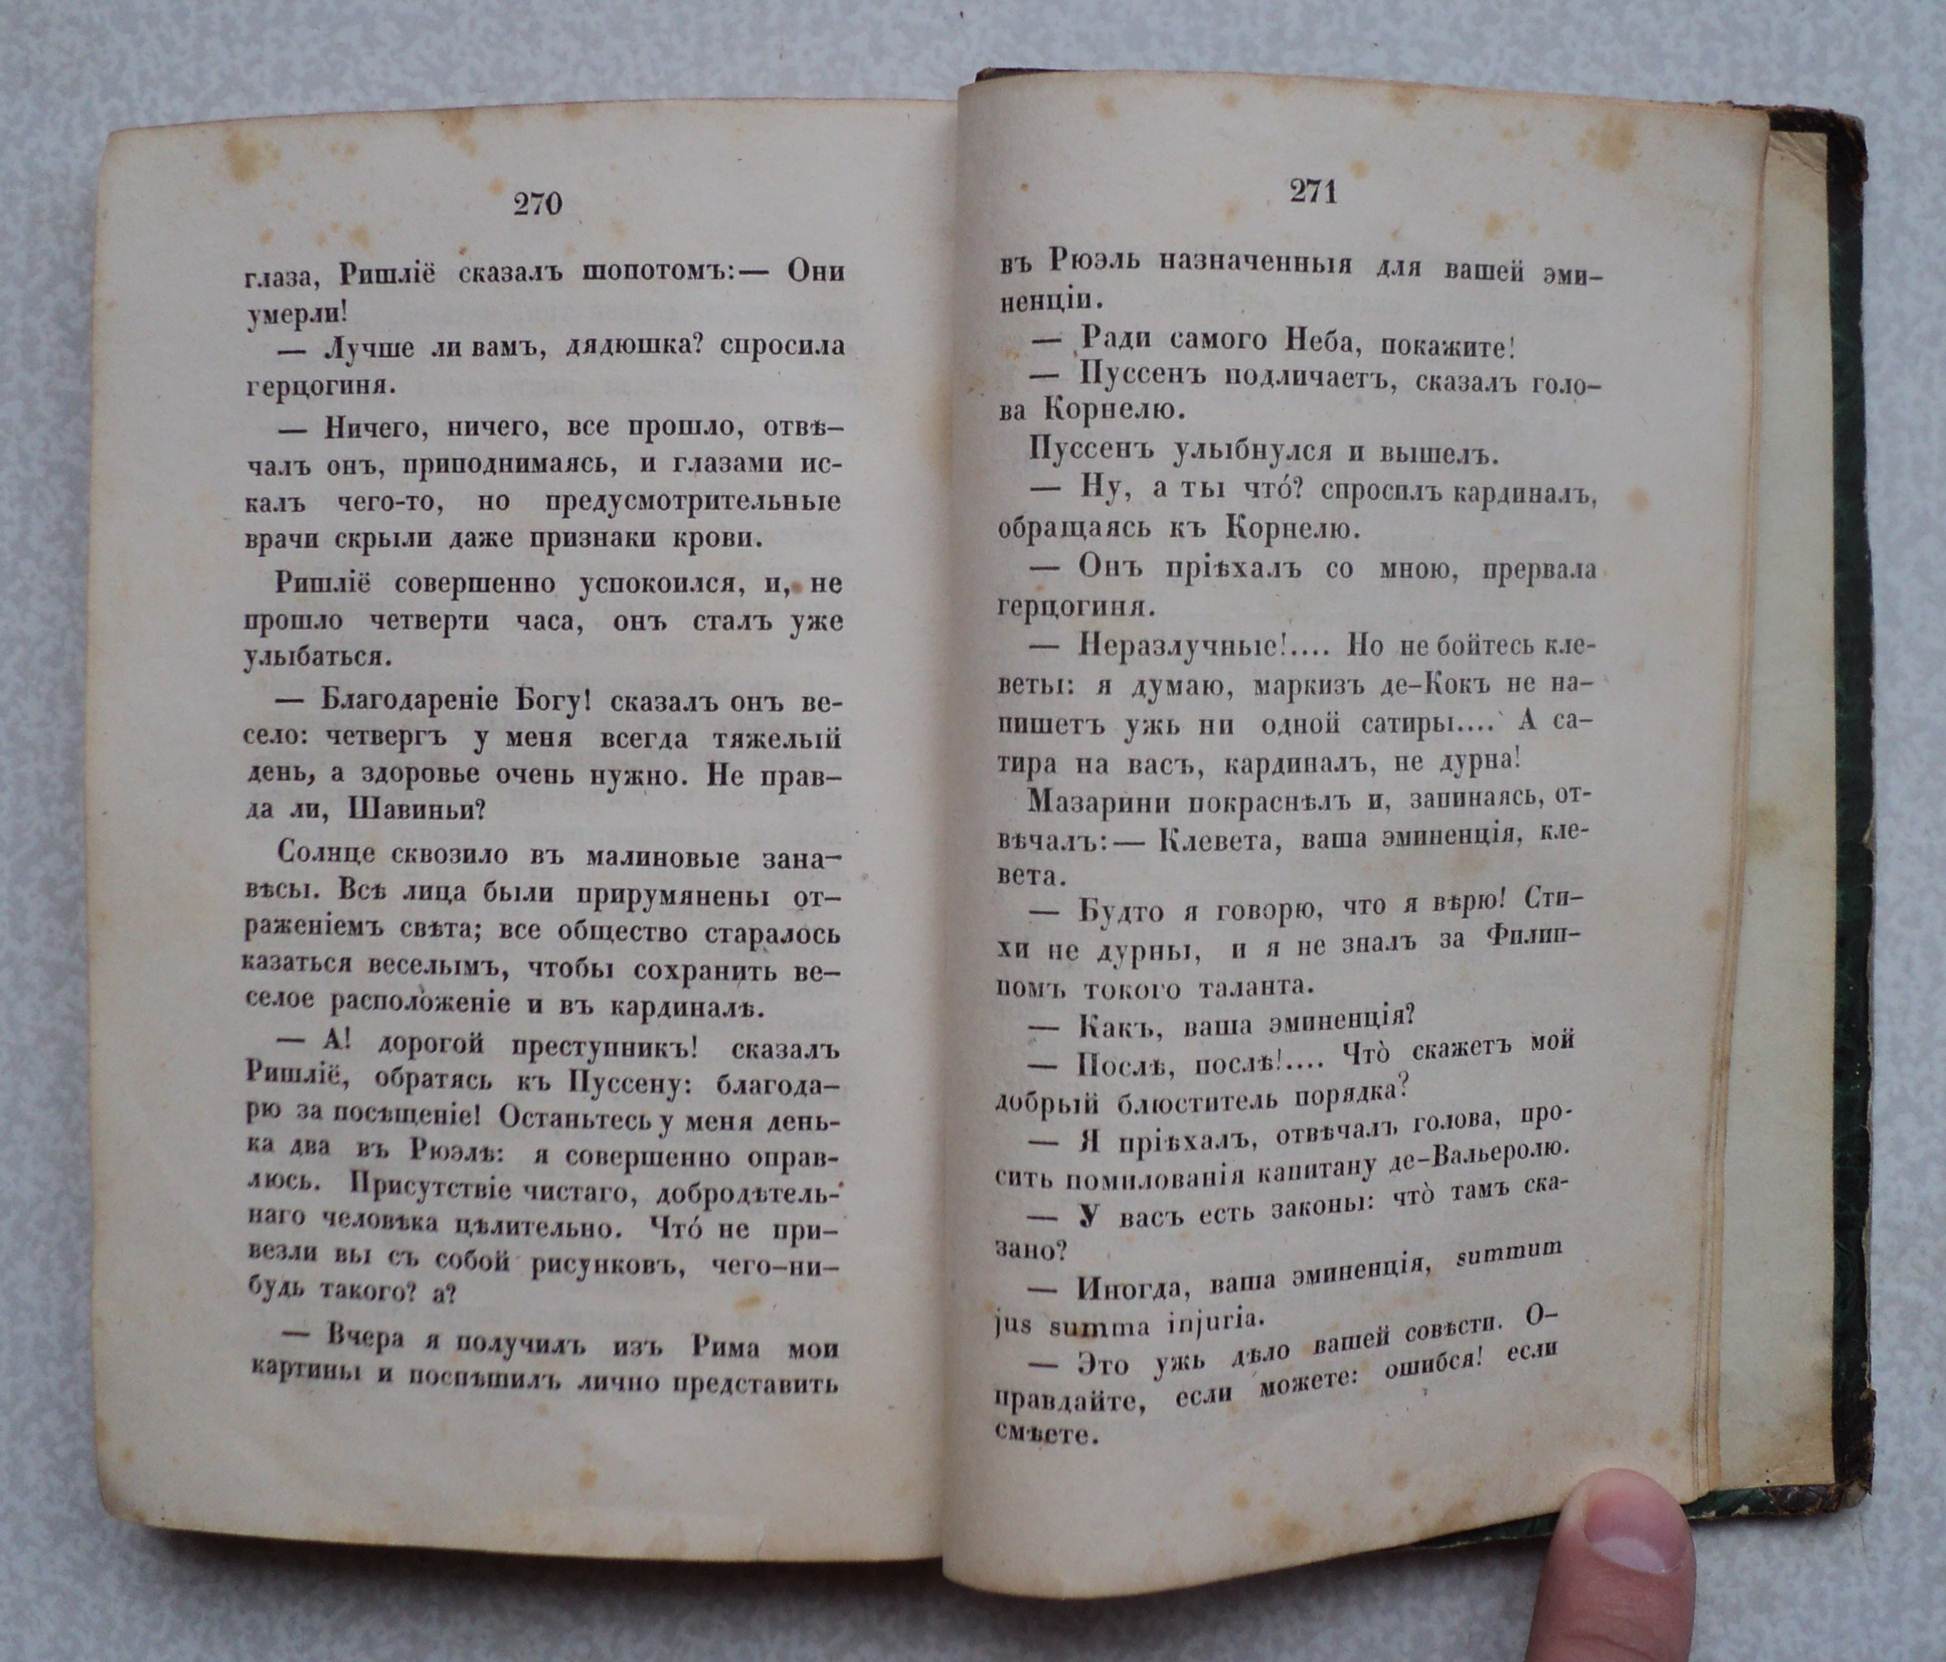 270
глаза, Ришліё сказалъ шопотомъ:— Они
умерли!
— Лучше ли вамъ, дядюшка? спросила
герцогиня.
— Ничего, ничего, все прошло, отвѣ-
чалъ онъ, приподнимаясь, и глазами ис-
калъ чего-то, но предусмотрительные
врачи скрыли даже признаки крови.
Ришліё совершенно успокоился, и, не
прошло четверти часа, онъ сталъ уже
улыбаться.
— Благодареніе Богу! сказалъ онъ ве-
село: четвергъ у меня всегда тяжелый
день, а здоровье очень нужно. Не прав-
да ли, Шавиньи?
Солнце сквозило въ малиновые зана-
вѣсы. Всѣ лица были прирумянены от-
раженіемъ свѣта; все общество старалось
казаться веселымъ, чтобы сохранить ве-
селое расположеніе и въ кардиналѣ.
— А! дорогой преступникъ! сказалъ
Ришліё, обратясь къ Пуссену: благода-
рю за посѣщеніе! Останьтесь у меня день-
ка два въ Рюэлѣ: я совершенно оправ-
люсь. Присутствіе чистаго, добродѣтель-
наго человѣка цѣлительно. Что́ не при-
везли вы съ собой рисунковъ, чего-ни-
будь такого? а?
— Вчера я получилъ изъ Рима мои
картины и поспѣшилъ лично представить
271
въ Рюэль назначенныя для вашей эми-
ненціи.
— Ради самого Неба, покажите!
— Пуссенъ подличаетъ, сказалъ голо-
ва Корнелю.
Пуссенъ улыбнулся и вышелъ.
— Ну, а ты что́? спросилъ кардиналъ,
обращаясь къ Корнелю.
— Онъ пріѣхалъ со мною, прервала
герцогиня.
— Неразлучные!.... Но не бойтесь кле-
веты: я думаю, маркизъ де-Кокъ не на-
пишетъ ужь ни одной сатиры.... А са-
тира на васъ, кардиналъ, не дурна!
Мазарини покраснѣлъ и, запинаясь, от-
вѣчалъ:— Клевета, ваша эминенція, кле-
вета.
— Будто я говорю, что я вѣрю! Сти-
хи не дурны, и я не зналъ за Филип-
помъ токого таланта.
— Какъ, ваша эминенція?
— Послѣ, послѣ!.... Что̀ скажетъ мой
добрый блюститель порядка?
— Я пріѣхалъ, отвѣчалъ голова, про-
сить помилованія капитану де-Вальеролю.
— У васъ есть законы: что̀ тамъ ска-
зано?
— Иногда, ваша эминенція, summum
jus summa injuria.
— Это ужь дѣло вашей совѣсти. О-
правдайте, если можете: ошибся! если
смѣете.